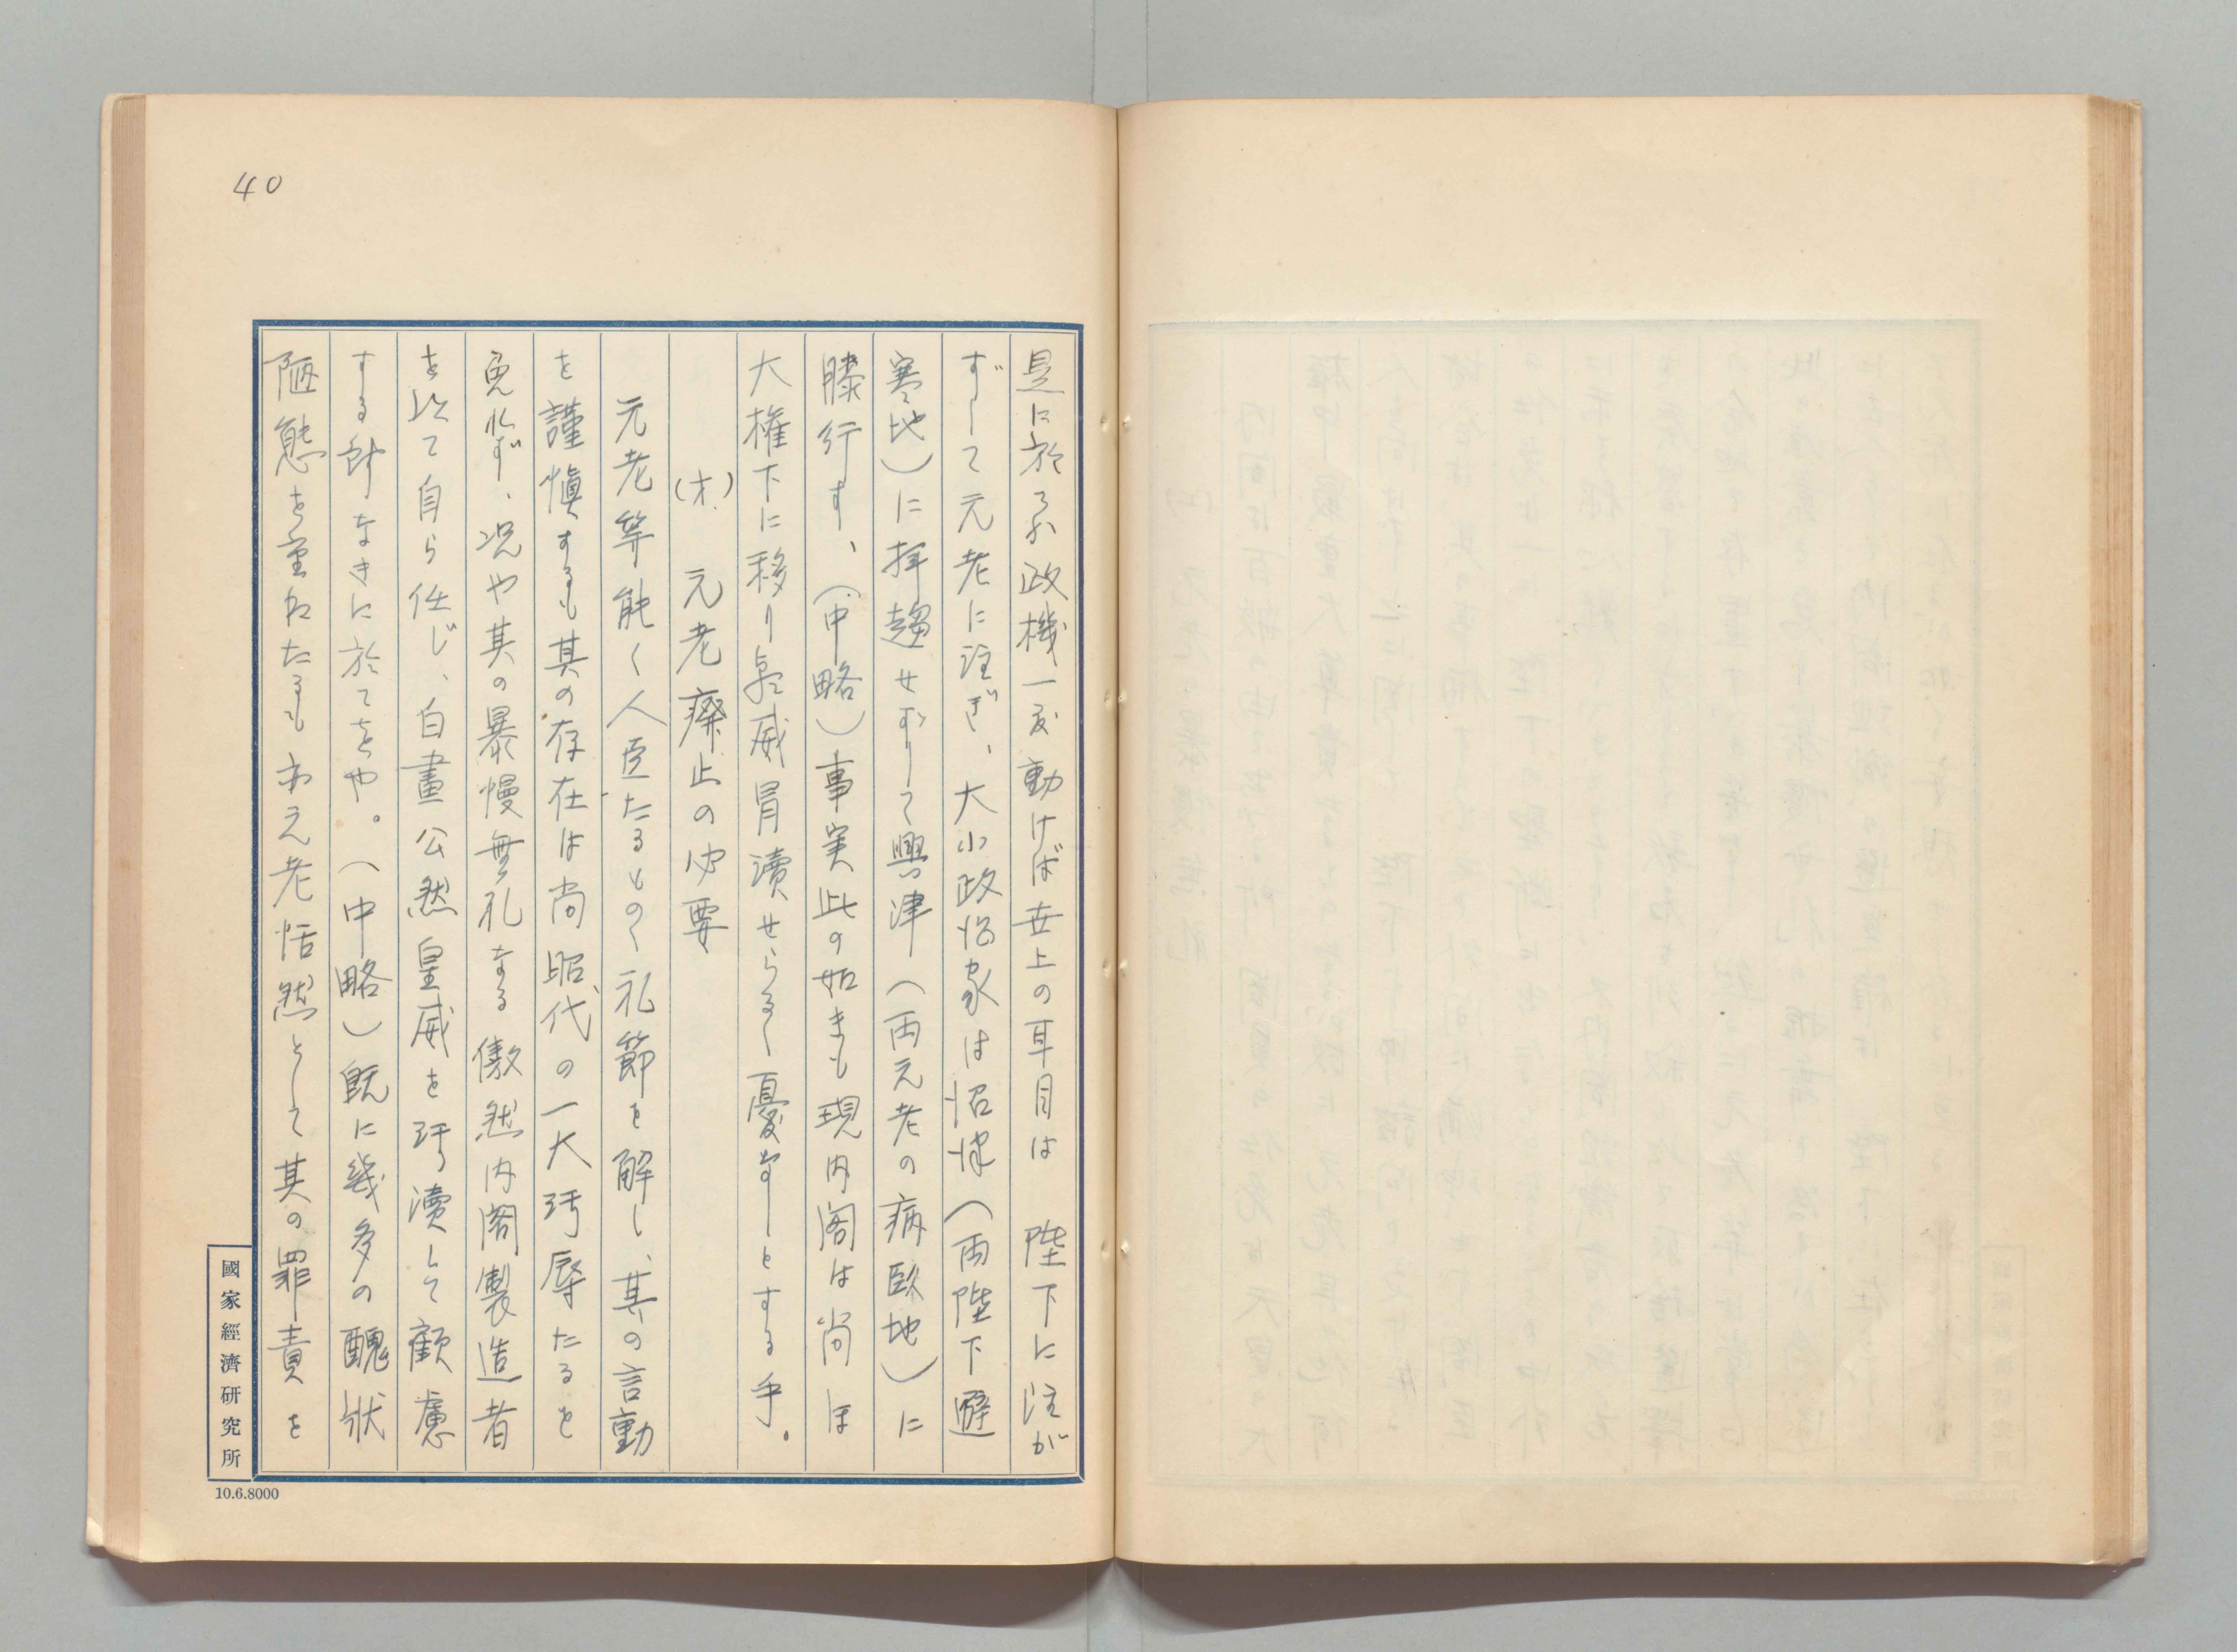 40
是に於てか政機一度動けば世上の耳目は　陛下に注が
ずして元老に注ぎ、大小政治家は沼津（両陛下避
寒地）に拝趨せずして興津（両元老の病臥地）に
膝行す、（中略）事実此の如きも現内閣は尚ほ
大権下に移り皇威冒瀆せらるゝ憂なしとする乎。
（オ）元老癈止の必要
元老等能く人臣たるものゝ礼節を解し、其の言動
を謹慎するも其の存在は尚昭代の一大汚辱たるを
免れず、况や其の暴慢無礼なる傲然内閣製造者
を以て自ら任じ、白晝公然皇威を汚瀆して顧慮
する所なきに於てをや。（中略）既に幾多の醜状
陋態を重ねたるも尚元老恬然として其の罪責を
國家經濟研究所
10.6.8000